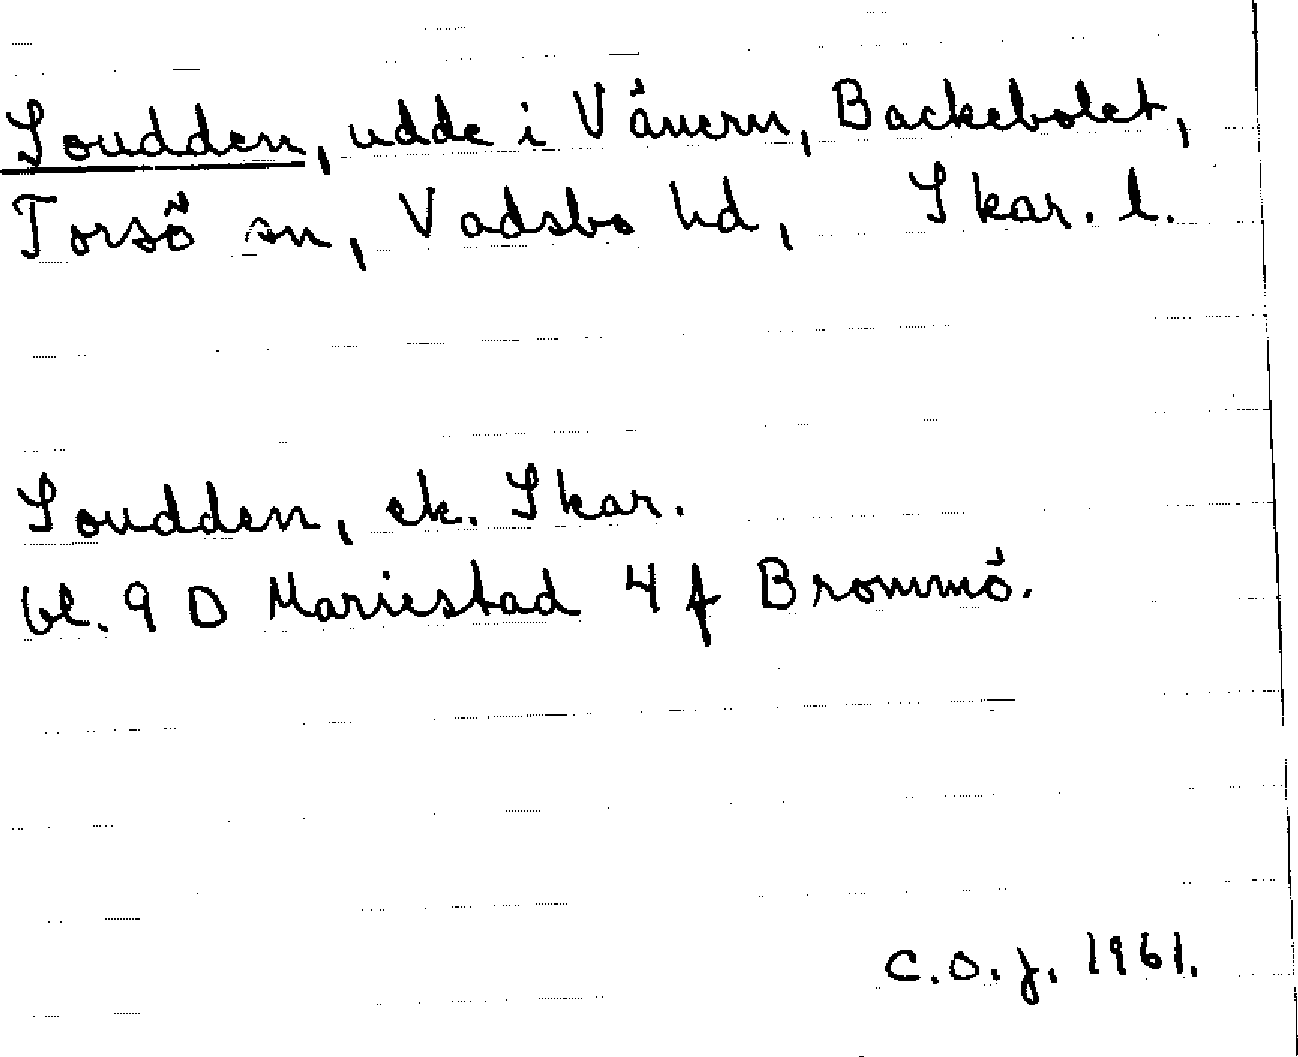 Soudden, udde i Vänern, Backebolet,
Torsö sn, Vadsbo hd, Skar. l.
Soudden, ek. Skar.
bl. 9 D Mariestad 4 f Brommö.
C.O.J. 1961.